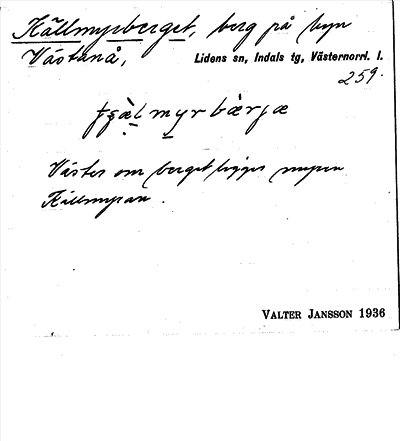 Källmyrberget, berg på byn
Västanå, Lidens sn, Indals tg, Västernorrl. l.
259.
myrbærjæ
Väster om berget ligger myren
Källmyran.
VALTER JANSSON 1936